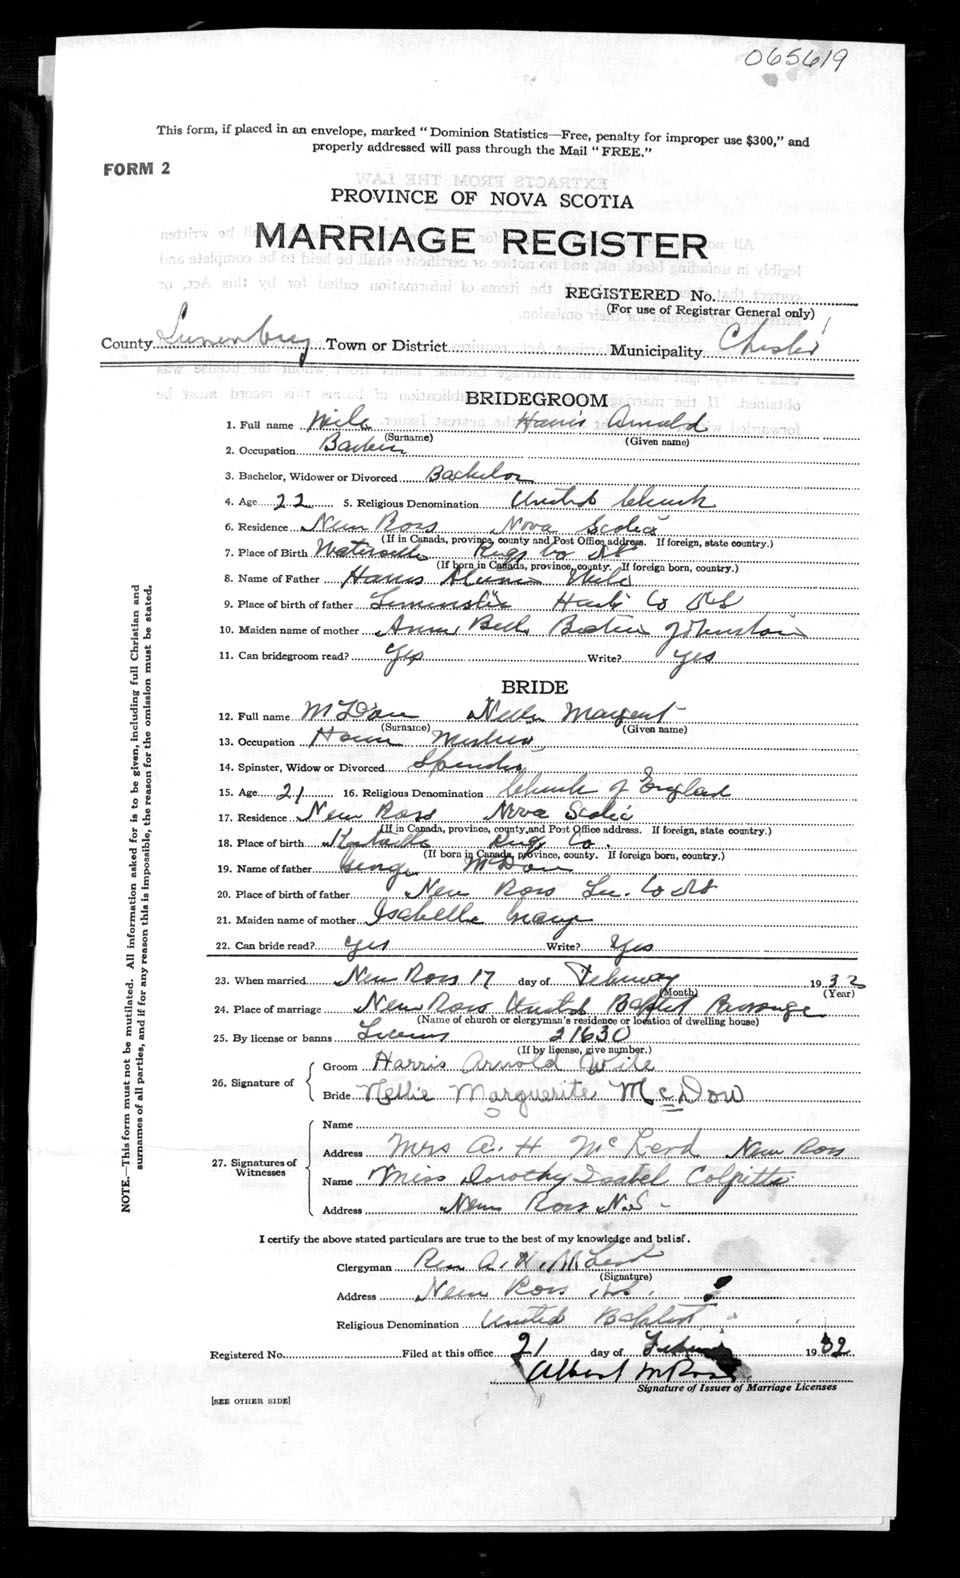 065619
This form, if placed in an envelope, marked "Dominion Statistics—Free, penalty for improper use $300," and
properly addressed will pass through the Mail "FREE."
FORM 2
PROVINCE OF NOVA SCOTIA
MARRIAGE REGISTER
REGISTERED No.
(For use of Registrar General only)
County Lunenburg Town or District Municipality Chester
BRIDEGROOM
1. Full name Wile Harris Arnold
(Surname) (Given name)
2. Occupation
3. Bachelor, Widower or Divorced Bachelor
4. Age 22 5. Religious Denomination United Church
6. Residence New Ross Nova Scotia
(If in Canada, province, county and Post Office address. If foreign, state country.)
7. Place of Birth Waterville Kings Co NS
(If born in Canada, province, county. If foreign born, country.)
8. Name of Father Harris Wile
9. Place of birth of father Hants Co NS
10. Maiden name of mother Johnston
11. Can bridegroom read? Yes Write? yes
BRIDE
12. Full name McDow Nellie Margent
(Surname) (Given name)
13. Occupation
14. Spinster, Widow or Divorced Spinster
15. Age 21 16. Religious Denomination Church of England
17. Residence New Ross Nova Scotia
(If in Canada, province, county and Post Office address. If foreign, state country.)
18. Place of birth Kings Co.
(If born in Canada, province, county. If foreign born, country.)
19. Name of father George McDow
20. Place of birth of father New Ross Lu. Co NS
21. Maiden name of mother Isabelle
22. Can bride read? yes Write? Yes
23. When married New Ross 17 day of February 1932
(Month) (Year)
24. Place of marriage New Ross United Baptist Parsonage
(Name of church or clergyman's residence or location of dwelling house)
25. By license or banns License 21630
(If by license, give number.)
26. Signature of
Groom Harris Arnold Wile
Bride Nellie Marguerite McDow
27. Signatures of Witnesses
Name
Address Mrs A. H McLeod New Ross
Name Miss Dorothy Isabel Colpitts
Address New Ross N.S -
I certify the above stated particulars are true to the best of my knowledge and belief.
Clergyman Rev A. H. McLeod
(Signature)
Address New Ross N.S.
Religious Denomination United Baptist
Registered No. Filed at this office 21 day of 1932
Albert M Ross
Signature of Issuer of Marriage Licenses
[SEE OTHER SIDE]
NOTE.—This form must not be mutilated. All information asked for is to be given, including full Christian and
surnames of all parties, and if for any reason this is impossible, the reason for the omission must be stated.